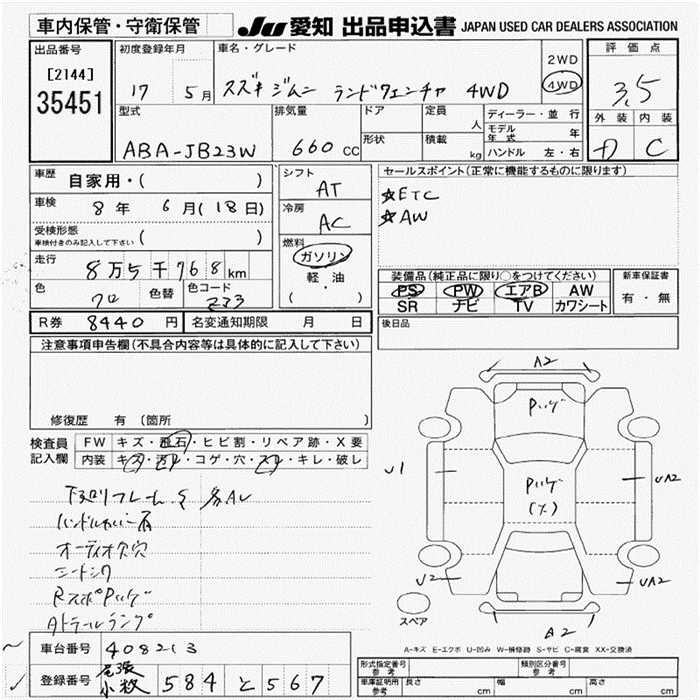 車内保管・守衛保管
JU 愛知 出品申込書 JAPAN USED CAR DEALERS ASSOCIATION
出品番号
[2144]
35451
初度登録年月
17 5月
車名・グレード
スズキ ジムニー ランドヴェンチャー 4WD
2WD
4WD
評価点
3.5
外装 内装
D C
型式
ABA-JB23W
排気量
660 CC
ドア
形状
定員 人
積載 kg
ディーラー・並行
モデル年式 年
ハンドル 左・右
車歴
自家用・( )
車検
8年 6月(18日)
受検形態
車検付きのみ記入して下さい ( )
走行
8万5千768km
色
クロ
色替
色コード
ZJ3
シフト
AT
冷房
AC
燃料
ガソリン
軽・油
( )
セールスポイント(正常に機能するものに限ります)
☆ETC
☆AW
装備品(純正品に限り○をつけてください)
PS PW エアB AW
SR ナビ TV カワシート
新車保証書
有・無
R券 8440円
名変通知期限 月 日
後日品
注意事項申告欄(不具合内容等は具体的に記入して下さい)
修復歴 有 (箇所 )
検査員
記入欄
FW キズ・飛石・ヒビ割・リペア跡・X要
内装 キズ・汚れ・コゲ・穴・スレ・キレ・破レ
下廻りフレーム
ハンドルカバー
オーディオ欠穴
A2
U1
UA2
U2
UA2
A2
スペア
A-キズ E-エクボ U-凹み W-補修跡 S-サビ C-腐食 XX-交換済
車台番号 408213
登録番号 尾張小牧 584 と 567
形式指定番号
参考
類別区分番号
参考
車庫証明用
参考
長さ cm
幅 cm
高さ cm